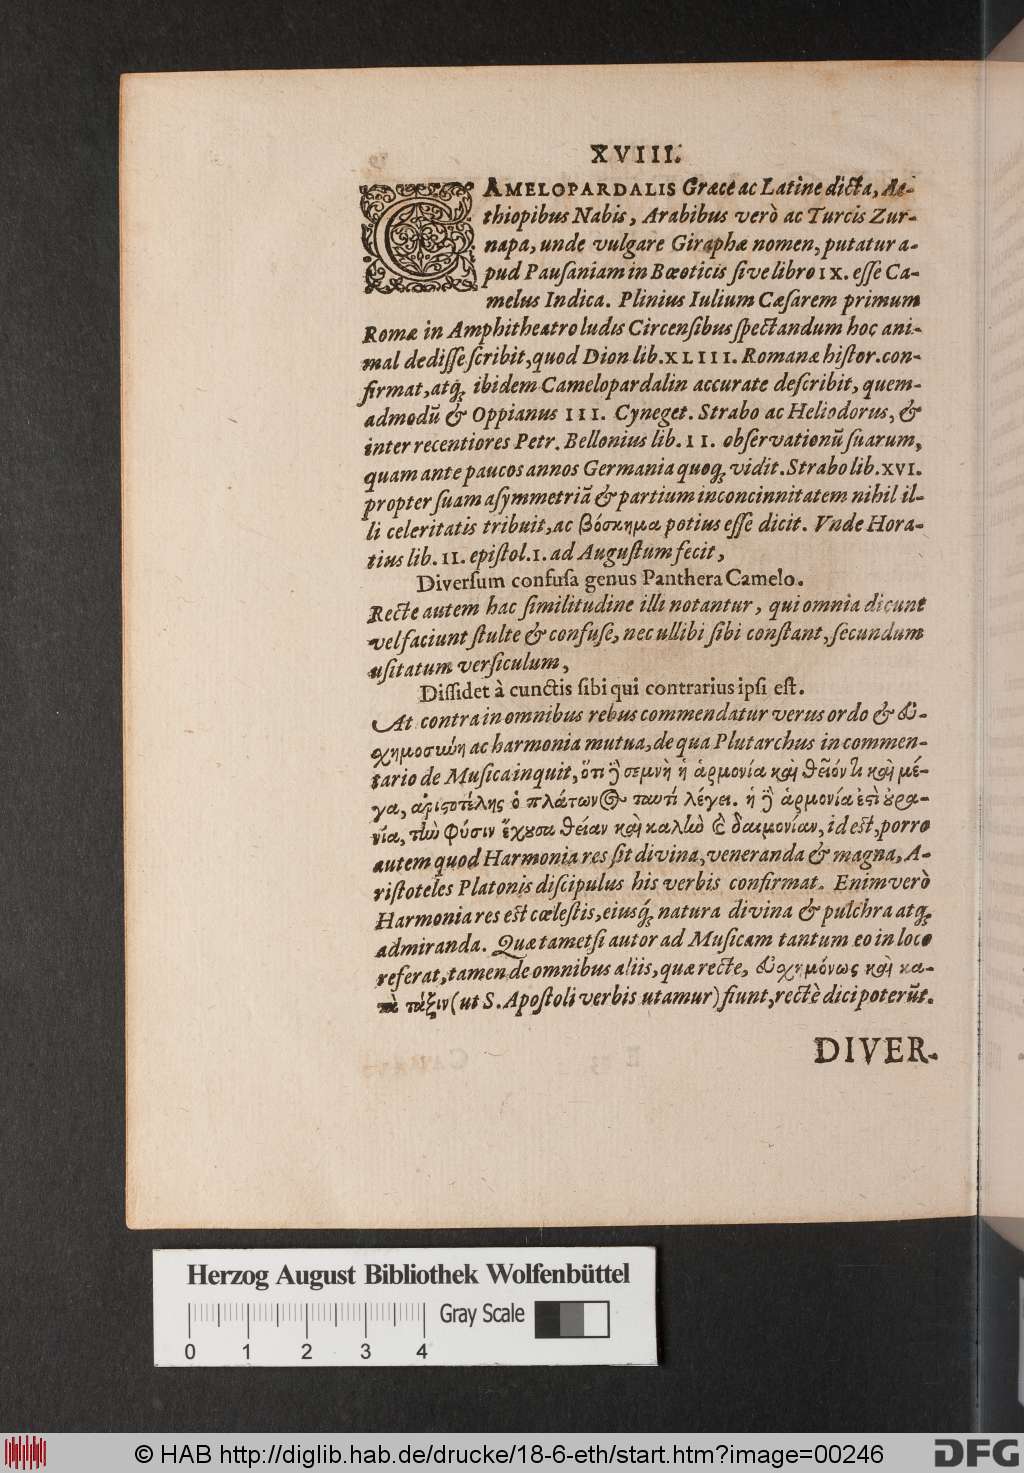 XVIII.
CAMELOPARDALIS Græce ac Latine dicta, Ae-
thiopibus Nabis, Arabibus verò ac Turcis Zur-
napa, unde vulgare Giraphæ nomen, putatur a-
pud Pausaniam in Bœoticis sive libro IX. esse Ca-
melus Indica. Plinius Iulium Cæsarem primum
Romæ in Amphitheatro ludis Circensibus spectandum hoc ani-
mal dedisse scribit, quod Dion lib. XLIII. Romanæ histor. con-
firmat, atq; ibidem Camelopardalin accurate describit, quem-
admodū & Oppianus III. Cyneget. Strabo ac Heliodorus, &
inter recentiores Petr. Bellonius lib. II. observationū suarum,
quam ante paucos annos Germania quoq; vidit. Strabo lib. XVI.
propter suam asymmetriā & partium inconcinnitatem nihil il-
li celeritatis tribuit, ac βόσκημα potius esse dicit. Vnde Hora-
tius lib. II. epistol. I. ad Augustum fecit,
Diversum confusa genus Panthera Camelo.
Recte autem hac similitudine illi notantur, qui omnia dicunt
vel faciunt stulte & confuse, nec ullibi sibi constant, secundum
usitatum versiculum,
Dissidet à cunctis sibi qui contrarius ipsi est.
At contra in omnibus rebus commendatur verus ordo & εὐ-
χημοσιώη ac harmonia mutua, de qua Plutarchus in commen-
tario de Musica inquit, ὅτι δὲ σεμνὴ ἡ ἁρμονία καὶ θεῖόν τι καὶ μέ-
γα, ἀριστοτέλης ὁ πλάτωνος ταυτί λέγει. ἡ δὲ ἁρμονία ἐστὶ οὐρα-
νία, τὴν φύσιν ἔχουσα θείαν καὶ καλὴν καὶ δαιμονίαν, id est, porro
autem quod Harmonia res sit divina, veneranda & magna, A-
ristoteles Platonis discipulus his verbis confirmat. Enimverò
Harmonia res est cœlestis, eiusq́; natura divina & pulchra atq;
admiranda. Quæ tametsi autor ad Musicam tantum eo in loco
referat, tamen de omnibus aliis, quæ recte, εὐχημόνως καὶ κα-
τὰ τάξιν (ut S. Apostoli verbis utamur) fiunt, rectè dici poterūt.
DIVER-
Herzog August Bibliothek Wolfenbüttel
Gray Scale
0 1 2 3 4
© HAB http://diglib.hab.de/drucke/18-6-eth/start.htm?image=00246
DFG